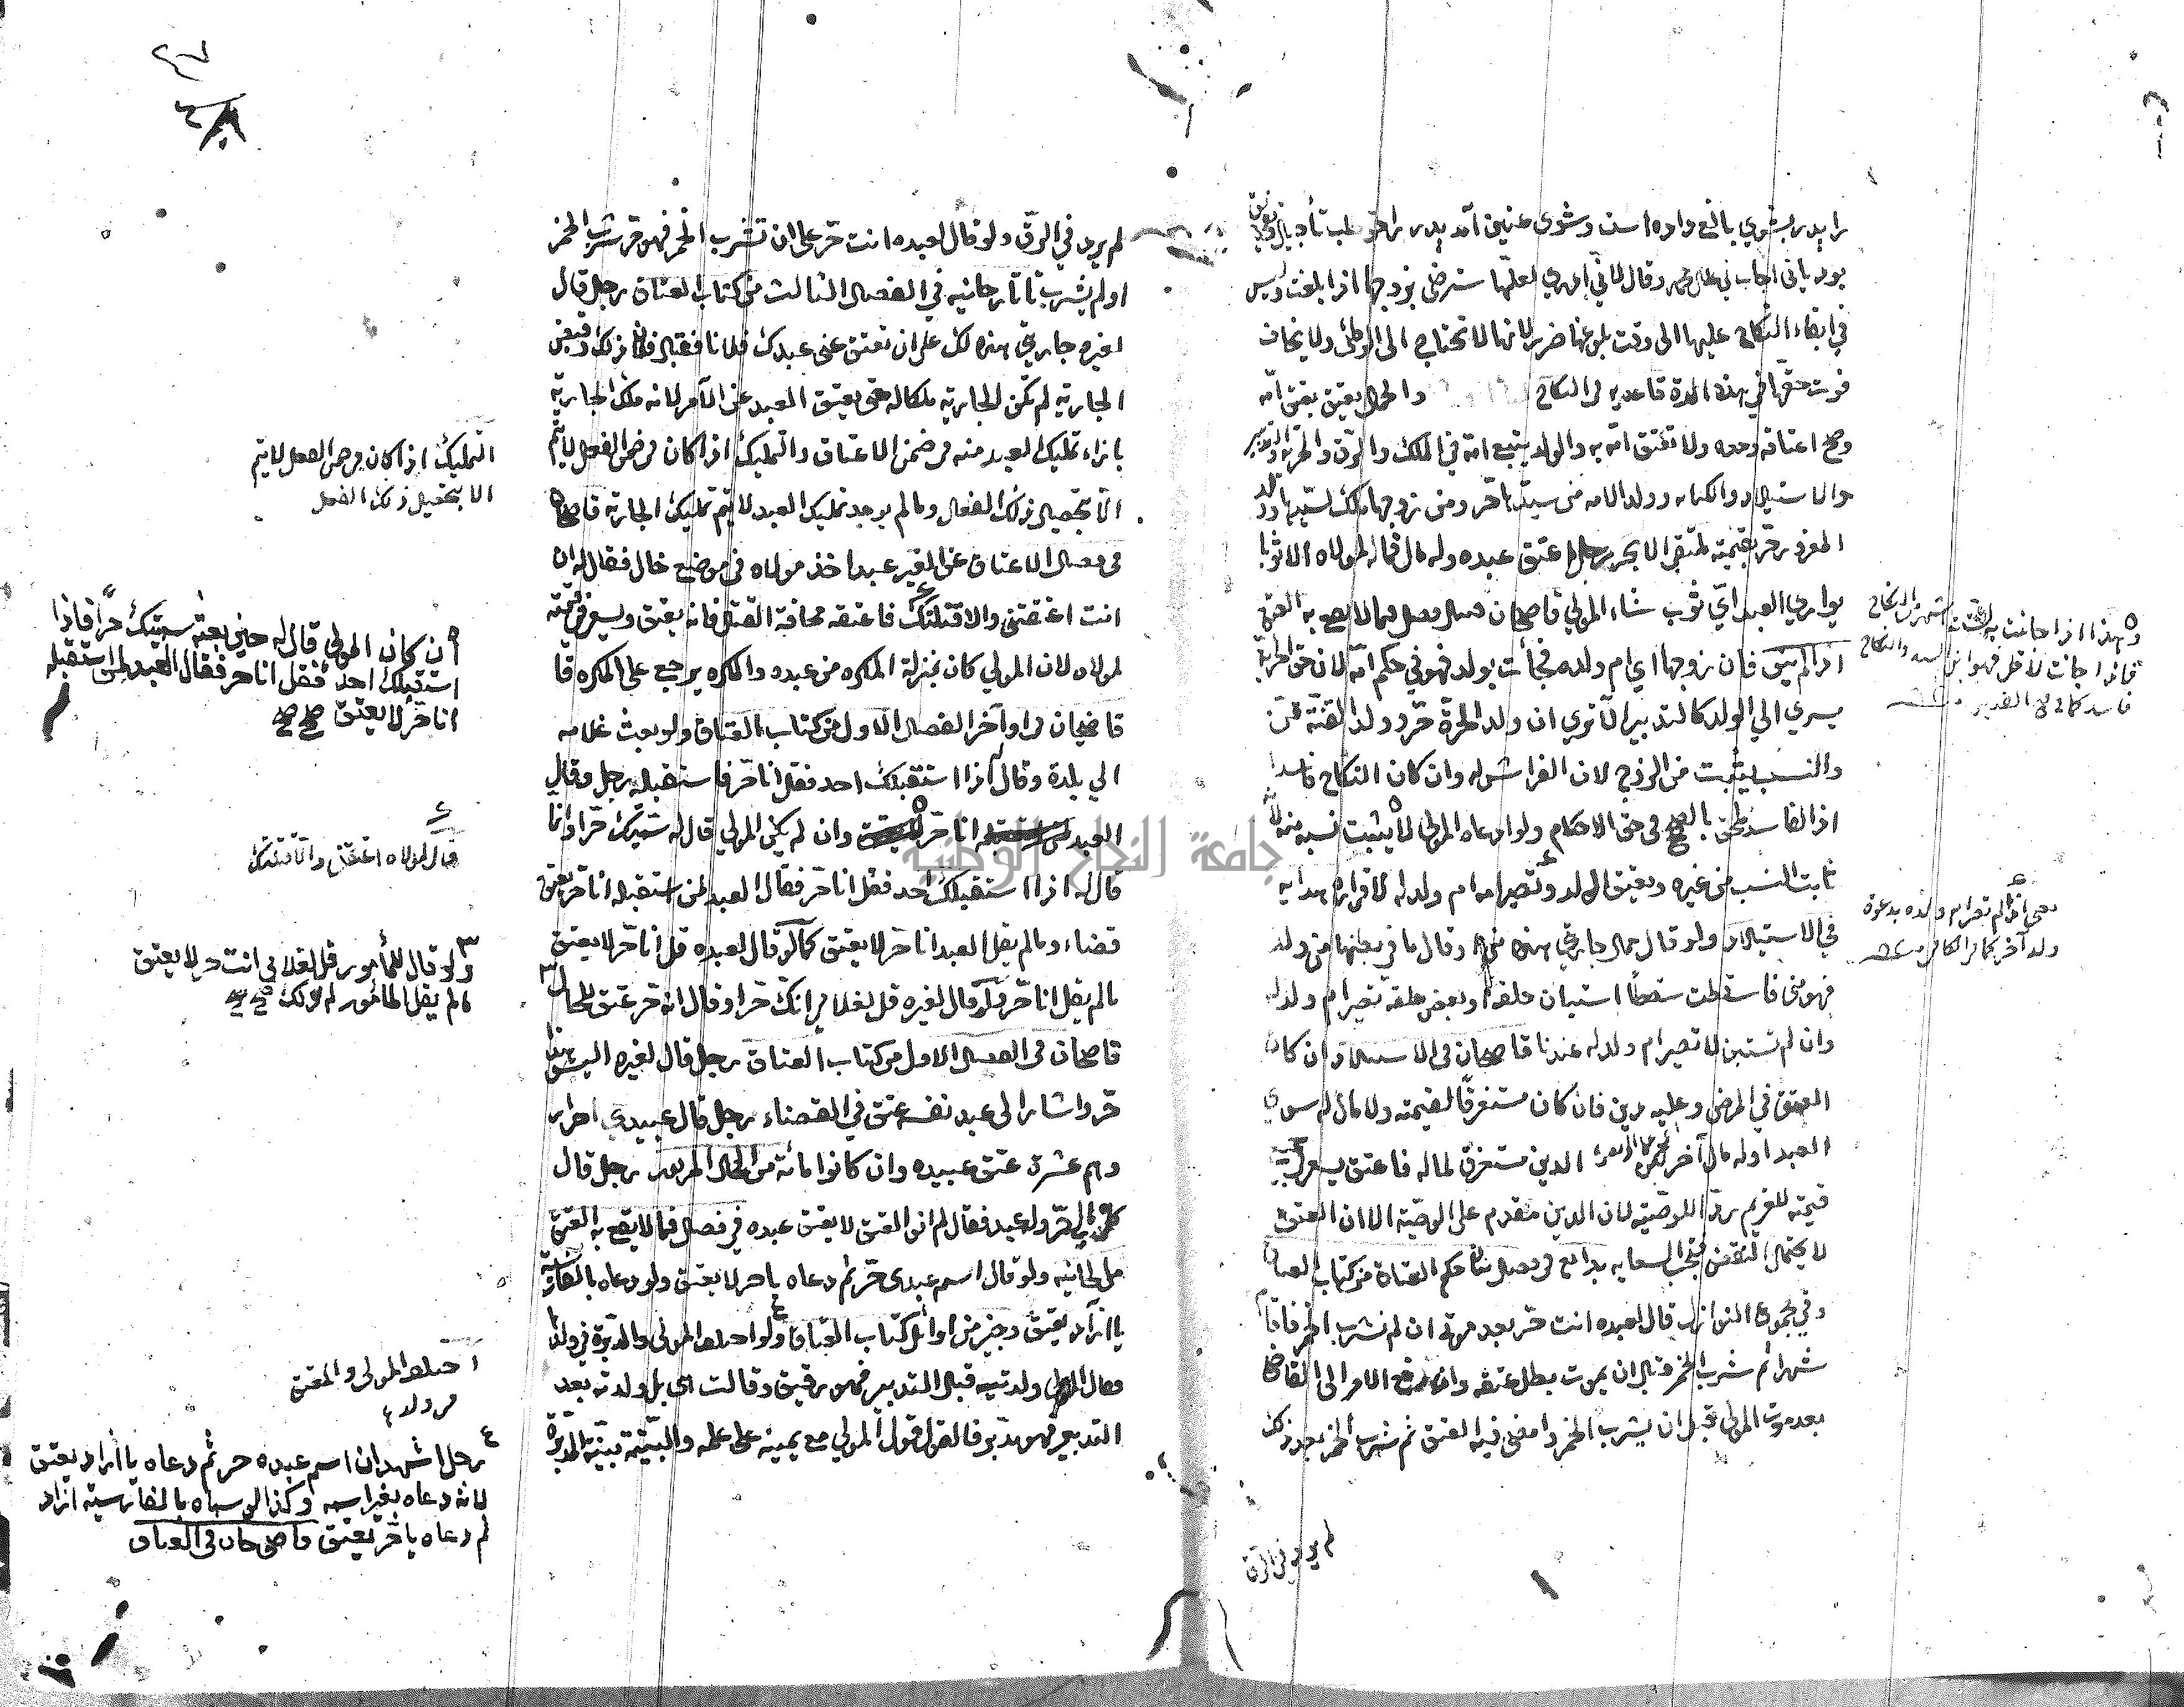 في ابقاء النكاح عليها الى وقت بلوغها ضرر لانها لا تحتاج الى الوطئ ولا يخاف
فوت حقها في هذه المدة قاعديه في النكاح والحمل يعتق بعتق امه
وصح اعتاقه وحده ولا تعتق امه به والولد يتبع امه في الملك والرق والحرية والتدبير
والاستيلاد والكتابه وولد الامه من سيدها حر ومن زوجها ملك لسيدها وولد
المغرور حر بقيمته ملتقى الابحر رجل اعتق عبده وله مال فماله لمولاه الا ثوبا
يواري العبد اي ثوب شاء المولي قاضيخان فصل فيما لا يقع به العتق
فان زوجها اي ام ولده فجأت بولد فهو في حكم امه لان حق الحرية
يسري الي الولد كالتدبير الا تري ان ولد الحرة حر وولد القنة قن
والنسب يثبت من الزوج لان الفراش له وان كان النكاح فاسدا
اذ الفاسد ملحق بالصحيح في حق الاحكام ولو ادعاه المولي لا يثبت نسبه منه لانه
ثابت النسب من غيره ويعتق الولد وتصير امه ام ولد له لاقراره هدايه
في الاستيلاد ولو قال حمل جاريتي هذه مني او قال ما في بطنها من ولد
فهو مني فاسقطت سقطا استبان خلقه او بعض خلقه تصير ام ولد له
وان لم تستبن لا تصير ام ولد له عندنا قاضيخان في الاستيلاد وان كان
العتق في المرض وعليه دين فان كان مستغرقا لقيمته ولا مال له سوي
العبد اوله مال آخر لكن الدين مستغرق لماله فاعتق يسعى في
قيمته للغريم ردا للوصية لان الدين مقدم على الوصية الا ان العتق
لا يحتمل النقض فتجب السعايه بدايع في فصل بيان حكم العتاق من كتاب العتاق
وفي مجموع النوازل قال لعبده انت حر بعد موتي ان لم تشرب الخمر فاقام
شهرا ثم شرب الخمر قبل ان يموت بطل عتقه وان رفع الامر الى القاضي
بعد موت المولي قبل ان يشرب الخمر وامضى فيه العتق ثم شرب الخمر بعد ذلك
لم يرد في الرق
وهذا اذا جائت به لستة اشهر من النكاح
فاذا جائت لاقل فهو ابن السيد والنكاح
فاسد كما في فتح القدير
يعني انما لم تصر ام ولده بدعوة
ولد آخر كما في الكافي
لم يرد في الرق ولو قال لعبده انت حر على ان تشرب الخمر فهو حر شرب الخمر
او لم يشرب تاتارخانيه في الفصل الثالث من كتاب العتاق رجل قال
لغيره جاريتي هذه لك على ان تعتق عني عبدك فلانا فقبل فلان ذلك وقبض
الجارية لم تكن الجارية ملكا له حتى يعتق العبد عن الآمر لانه ملك الجارية
بازاء تمليك العبد منه في ضمن الاعتاق والتمليك اذا كان في ضمن الفعل لا يتم
الا بتحصيل ذلك الفعل وما لم يوجد تمليك العبد لا يتم تمليك الجارية قاضيخان
في فصل الاعتاق عن الغير عبد اخذ مولاه في موضع خال فقال له ان
انت اعتقتني والا قتلتك فاعتقه مخافة القتل فانه يعتق ويسعى في قيمته
لمولاه لان المولي كان بمنزلة المكره من عبده والمكره يرجع على المكره قا
قاضيخان في اواخر الفصل الاول من كتاب العتاق ولو بعث غلامه
الي بلدة وقال له اذا استقبلك احد فقل انا حر فاستقبله رجل وقال
العبد انا حر وان لم يكن المولي قال له سميتك حرا وانما
قال له اذا استقبلك احد فقل انا حر فقال العبد لمن استقبله انا حر يعتق
قضاء وما لم يقل العبد انا حر لا يعتق كما لو قال لعبده قل انا حر لا يعتق
ما لم يقل انا حر ولو قال لغيره قل لغلامي انك حر او قال انه حر عتق للحال
قاضيخان في الفصل الاول من كتاب العتاق رجل قال لغيره اليس هذا
حر واشار الى عبد نفسه عتق في القضاء رجل قال عبيدي احرار
وهم عشرة عتق عبيده وان كانوا مائة من المحل المزبور رجل قال
حر وله عبد فقال لم انو العتق لا يعتق عبده في فصل فيما لا يقع به العتق
من الخانيه ولو قال اسم عبدى حر ثم دعاه يا حر لا يعتق ولو دعاه بالفارسية
يا ازاد يعتق وجيز من اوائل كتاب العتاق ولو اختلف المولى والمدبرة في ولدها
فقال المولي ولدتيه قبل التدبير فهو رقيق وقالت هي بل ولدته بعد
التدبير فهو مدبر فالقول قول المولي مع يمينه على علمه والبينة بينة المدبرة
التمليك اذا كان في ضمن الفعل لا يتم
الا بتحصيل ذلك الفعل
ان كان المولي قال له حين بعثه سميتك حرا فاذا
استقبلك احد فقل انا حر فقال العبد لمن استقبله
انا حر لا يعتق صح صح
قال لمولاه اعتقني والا قتلتك
ولو قال للمأمور قل لغلامي انت حر لا يعتق
ما لم يقل المأمور له ذلك صح صح
اختلف المولى والمعتق
في ولدها
رجل اشهد ان اسم عبده حر ثم دعاه يا ازاد يعتق
لانه دعاه بغير اسمه وكذا لو سماه بالفارسية ازاد
ثم دعاه يا حر يعتق قاضي خان في العتاق
جامعة النجاح الوطنية